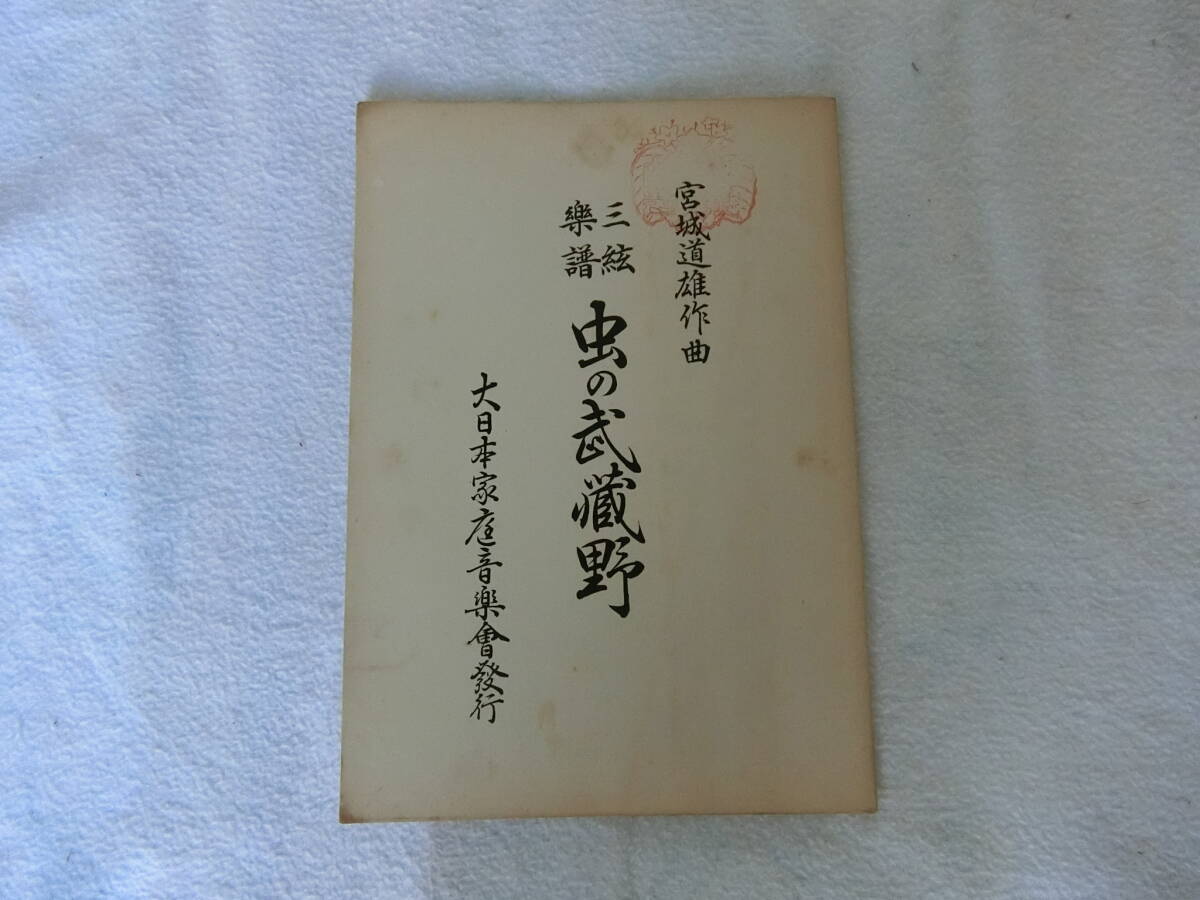 宮城道雄作曲
三絃
樂譜
虫の武藏野
大日本家庭音樂會發行